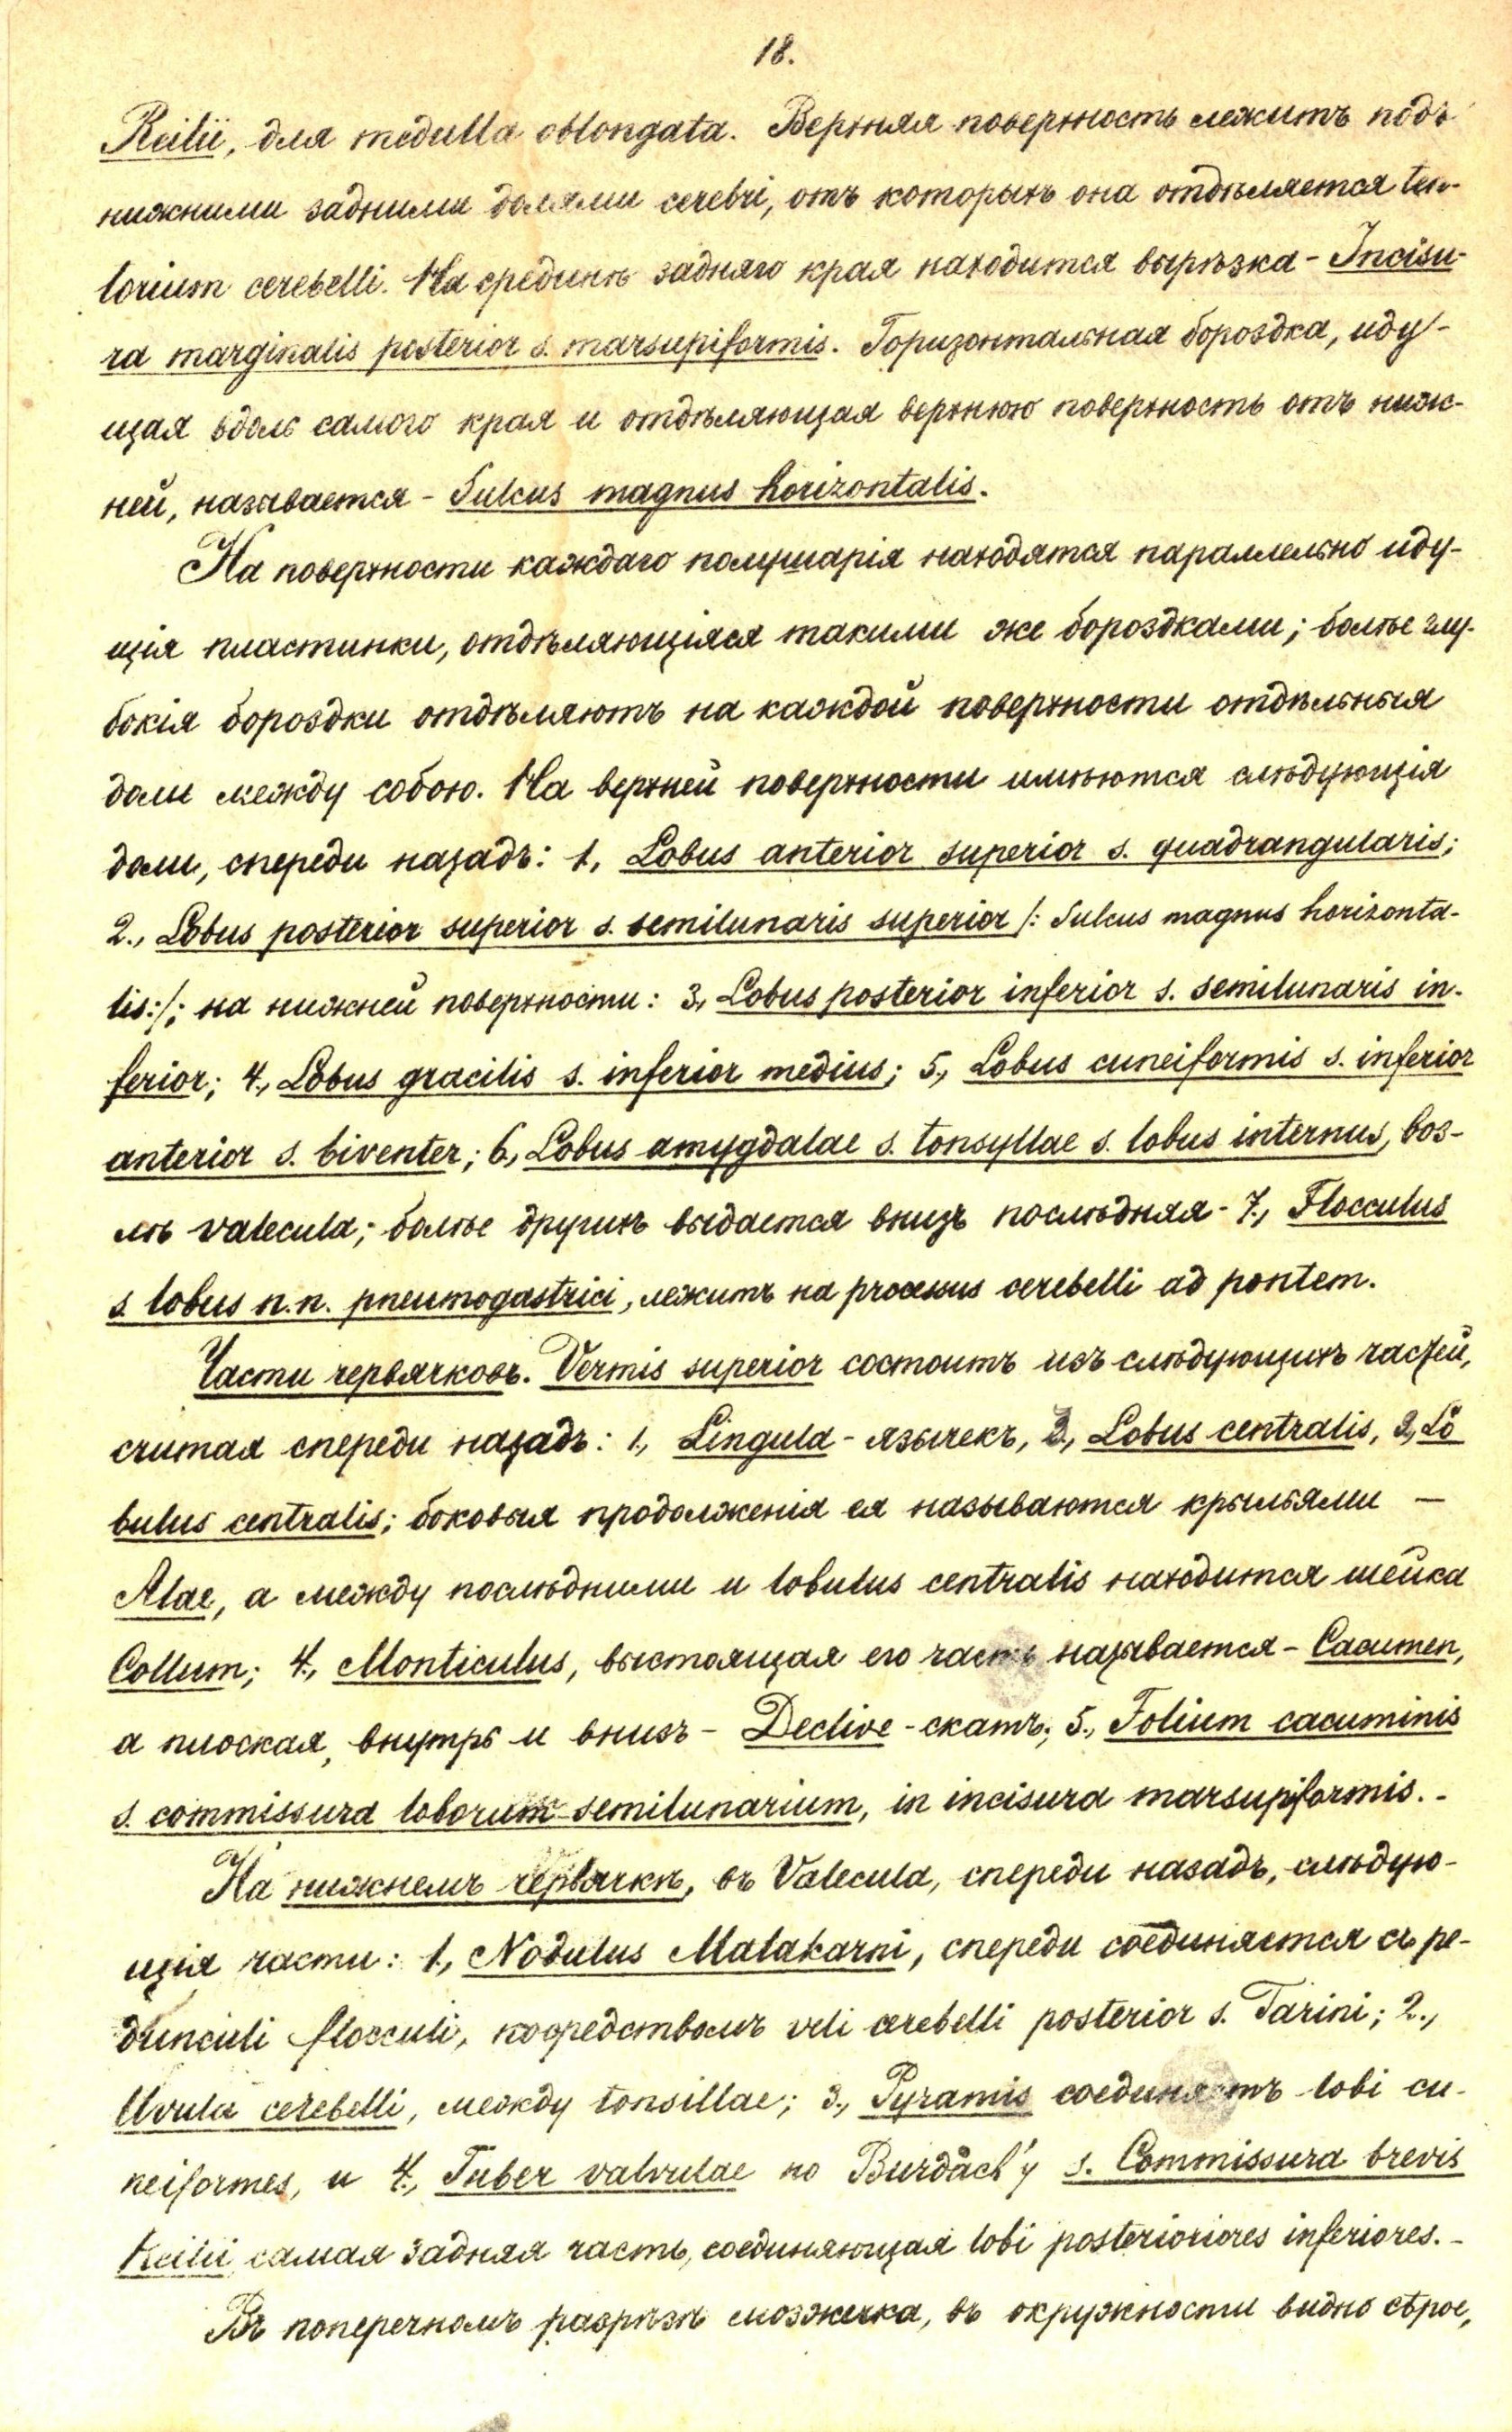 18.
Reilii, для medulla oblongata. Верхняя поверхность лежитъ подъ
нижними задними долями cerebri, отъ которыхъ она отдѣляется ten-
torium cerebelli. На срединѣ задняго края находится вырѣзка - Incisu-
ra marginalis posterior s. marsupiformis. Горизонтальная бороздка, иду-
щая вдоль самого края и отдѣляющая верхнюю поверхность отъ ниж-
ней, называется - Sulcus magnus horizontalis.
На поверхности каждаго полушарія находятся параллельно иду-
щія пластинки, отдѣляющіяся такими же бороздками; болѣе глу-
бокія бороздки отдѣляютъ на каждой поверхности отдѣльныя
доли между собою. На верхней поверхности имѣются слѣдующія
доли, спереди назадъ: 1, Lobus anterior superior s. quadrangularis;
2., Lobus posterior superior s. semilunaris superior /: Sulcus magnus horizonta-
lis:/; на нижней поверхности: 3, Lobus posterior inferior s. semilunaris in-
ferior; 4., Lobus gracilis s. inferior medius; 5., Lobus cuneiformis s. inferior
anterior s. biventer; 6, Lobus amygdalae s. tonsyllae s. lobus internus, воз-
лѣ valecula; болѣе другихъ выдается внизъ послѣдняя - 7., Flocculus
s. lobus n.n. pneumogastrici, лежитъ на processus cerebelli ad pontem.
Части червячковъ. Vermis superior состоитъ изъ слѣдующихъ частей,
считая спереди назадъ: 1., Lingula - язычекъ, 2., Lobus centralis, 2, Lo
bulus centralis; боковыя продолженія ея называются крыльями —
Alae, а между послѣдними и lobulus centralis находится шейка
Collum; 4., Monticulus, выстоящая его часть называется - Cacumen,
а плоская, внутрь и внизъ - Declive - скатъ; 5., Folium cacuminis
s. commissura loborum semilunarium, in incisura marsupiformis. -
На нижнемъ червячкѣ, въ Valecula, спереди назадъ, слѣдую-
щія части: 1, Nodulus Malakarni, спереди соединяется съ pe-
dunculi flocculi, посредствомъ veli cerebelli posterior s. Tarini; 2.,
Uvula cerebelli, между tonsillae; 3., Pyramis соединяетъ lobi cu-
neiformes, и 4., Tuber valvulae по Burdach'у s. Commissura brevis
Reilii самая задняя часть, соединяющая lobi posterioriores inferiores. -
Въ поперечномъ разрѣзѣ мозжечка, въ окружности видно сѣрое,